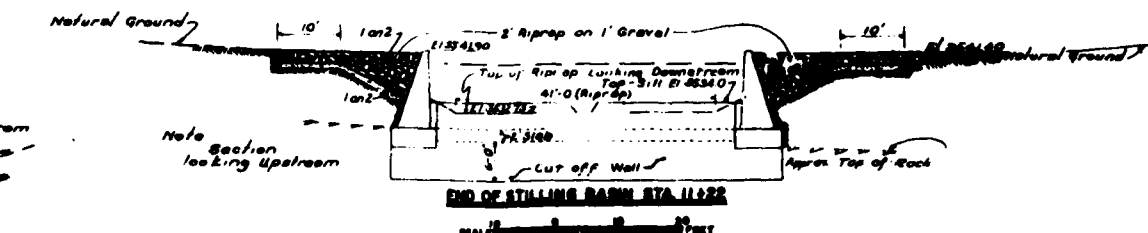 Natural Ground
10'
1 on 2
2' Riprap on 1' Gravel
10'
Natural Ground
Top of Riprap Looking Downstream
Top-Sill El 3534.0
41'-0 (Riprap)
1 on 2
Note
Section
looking Upstream
2' Slab
6'-0"
Cut off Wall
Approx Top of Rock
END OF STILLING BASIN STA 11+22
10 0 10 20
FEET